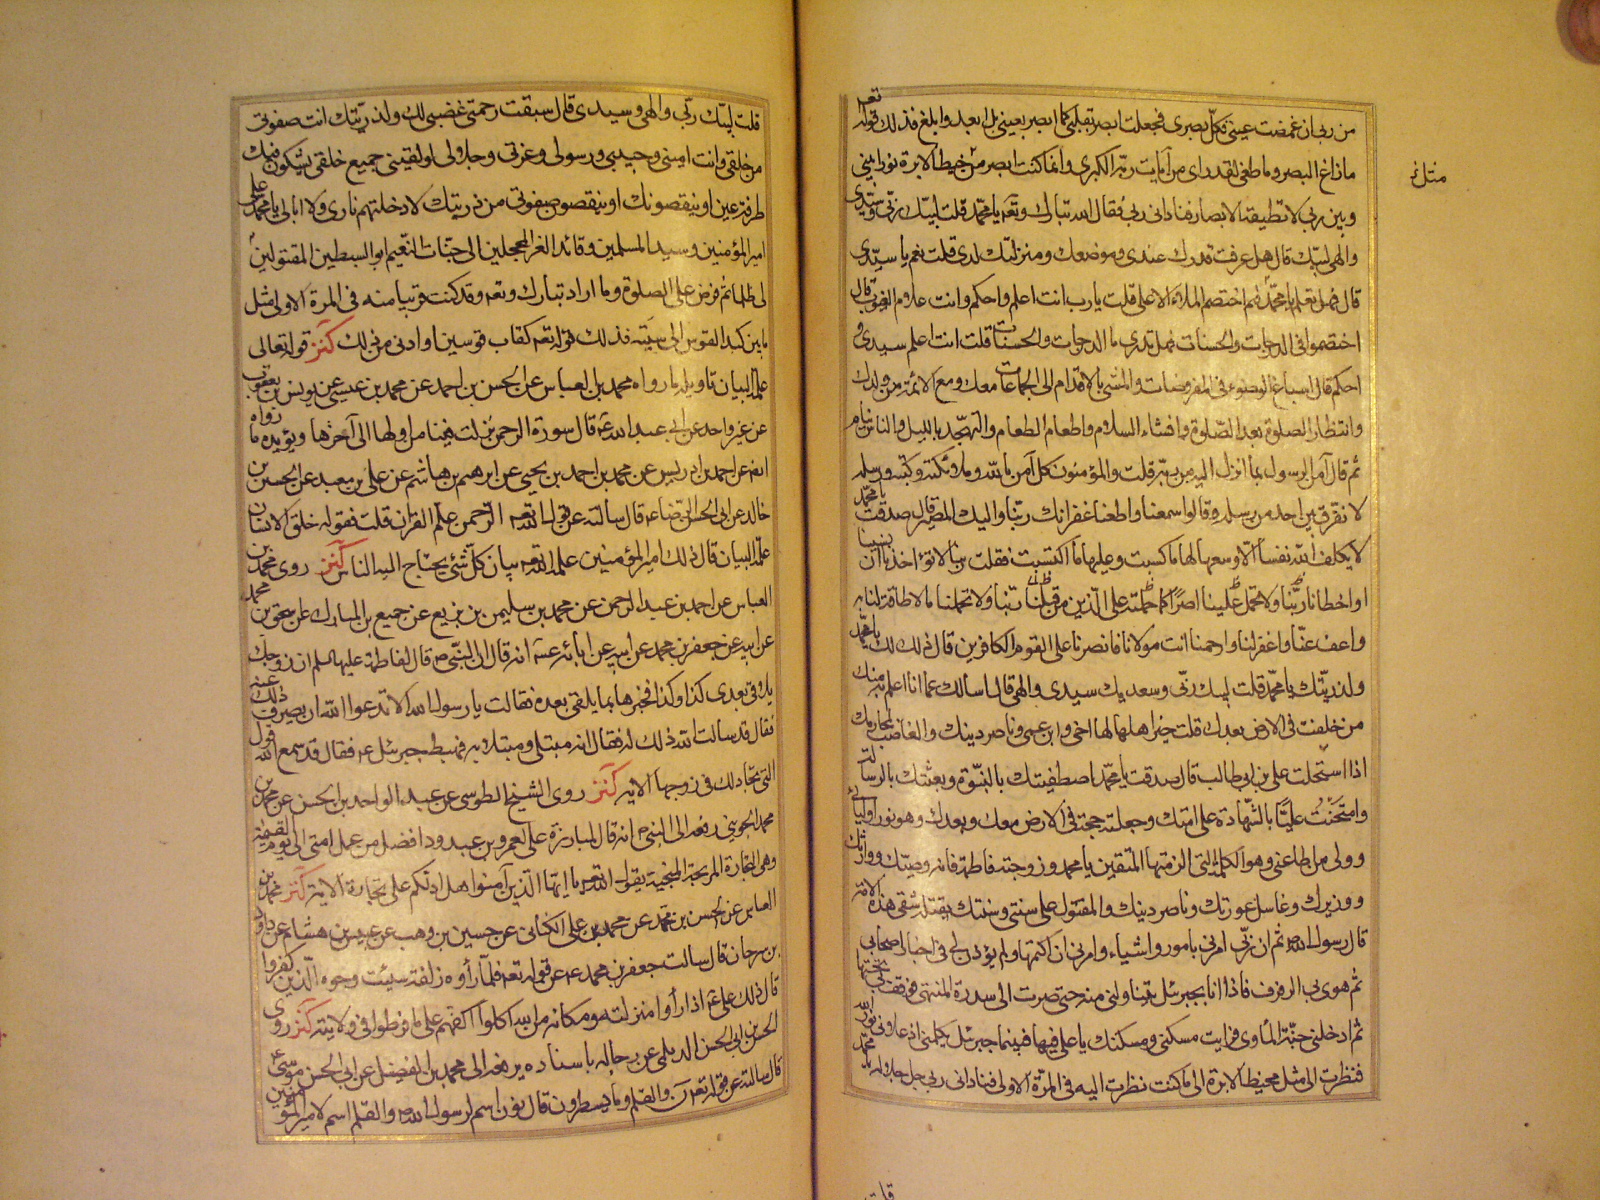 من ربي ان غمضت عيني وكلّ بصري فجعلت ابصر بقلبي كما ابصر بعيني بل ابعد وابلغ فذلك قوله تعه
ما زاغ البصر وما طغى لقد راى من آيات ربه الكبرى وانما كنت ابصر من خيط الابرة نورا بيني
مثل
وبين ربي لا تطيقه الابصار فناداني ربي فقال الله تبارك وتعه يا محمد قلت لبيك ربي وسيدي
والهي لبيك قال هل عرفت قدرك عندي وموضعك ومنزلتك لدي قلت نعم يا سيدي
قال فهل تعلم يا محمد فيم اختصم الملاء الاعلى قلت يا رب انت اعلم واحكم وانت علام الغيوب قال
اختصموا في الدرجات والحسنات فهل تدري ما الدرجات والحسنات قلت انت اعلم سيدي و
احكم قال اسباغ الوضوء في المفروضات والمشي بالاقدام الى الجماعات معك ومع الائمة من ولدك
وانتظار الصلوة بعد الصلوة وافشاء السلام واطعام الطعام والتهجد بالليل والناس نيام
ثم قال آمن الرسول بما انزل اليه من ربه قلت والمؤمنون كل آمن بالله وملائكته وكتبه ورسله
لا نفرق بين احد من رسله وقالوا سمعنا واطعنا غفرانك ربنا واليك المصير قال صدقت يا محمد
لا يكلف الله نفسا الا وسعها لها ما كسبت وعليها ما اكتسبت فقلت ربنا لا تؤاخذنا ان نسينا
او اخطانا ربنا ولا تحمل علينا اصرا كما حملته على الذين من قبلنا ربنا ولا تحملنا ما لا طاقة لنا به
واعف عنا واغفر لنا وارحمنا انت مولانا فانصرنا على القوم الكافرين قال ذلك لك يا محمد
ولذريتك يا محمد قلت لبيك ربي وسعديك سيدي والهي قال اسالك عما انا اعلم به منك
من خلفت في الارض بعدك قلت خير اهلها لها اخي وابن عمي وناصر دينك والغاضب لمحارمك
اذا استحلت علي بن ابي طالب قال صدقت يا محمد اصطفيتك بالنبوة وبعثتك بالرسالة
وامتحنت عليا بالشهادة على امتك وجعلته حجة في الارض معك وبعدك وهو نور اوليائي
وولي من اطاعني وهو الكلمة التي الزمتها المتقين يا محمد وزوجته فاطمة فانه وصيك ووارثك
ووزيرك وغاسل عورتك وناصر دينك والمقتول على سنتي وسنتك يقتله شقي هذه الامة
قال رسول الله ثم ان ربي امرني بامور واشياء وامرني ان اكتمها ولم يؤذن لي في اخبار اصحابي
ثم هوى بي الرفرف فاذا انا بجبرئيل يتناولني منه حتى صرت الى سدرة المنتهى فوقف بي تحتها
ثم ادخلني جنة المأوى فرايت مسكني ومسكنك يا علي فيها فبينما جبرئيل يكلمني اذ علاني نور الله
فنظرت الى مثل مخيط الابرة الى ما كنت نظرت اليه في المرة الاولى فناداني ربي جل جلاله يا محمد
قلت
قلت لبيك ربي والهي وسيدي قال سبقت رحمتي غضبي لك ولذريتك انت صفوتي
من خلقي وانت اميني وحبيبي ورسولي وعزتي وجلالي لو لقيني جميع خلقي يشكون فيك
طرفة عين او ينقصونك او ينقصون صفوتي من ذريتك لادخلتهم ناري ولا ابالي يا محمد علي
امير المؤمنين وسيد المسلمين وقائد الغر المحجلين الى جنات النعيم ابو السبطين المقتولين
لي ظلما ثم فرض علي الصلوة وما اراد تبارك وتعه وقد كنت قريبا منه في المرة الاولى مثل
ما بين كبد القوس الى سيته فذلك قوله تعه كقاب قوسين او ادنى من ذلك كنز قوله تعالى
علمه البيان تاويله ما رواه محمد بن العباس عن الحسن بن احمد عن محمد بن عيسى عن يونس بن يعقوب
عن غير واحد عن ابي عبد الله ع قال سورة الرحمن نزلت فينا من اولها الى آخرها ويؤيده ما رواه
ايضا عن احمد بن ادريس عن محمد بن احمد بن يحيى عن ابرهيم بن هاشم عن علي بن معبد عن الحسين بن
خالد عن ابي الحسن الرضا ع قال سالته عن قول الله تعه الرحمن علم القرآن قلت فقوله خلق الانسان
علمه البيان قال ذلك امير المؤمنين علمه الله تعه بيان كل شئ يحتاج اليه الناس كنز روى محمد بن
العباس عن احمد بن عبد الرحمن عن محمد بن سليمن بن بزيع عن جميع بن المبارك عن اسحق بن محمد
عن ابيه عن جعفر بن محمد عن ابيه عن آبائه ع انه قال ان النبي ص قال لفاطمة عليها سلم ان زوجك
يلاقي بعدي كذا وكذا فخبرها بما يلقى بعده فقالت يا رسول الله الا تدعوا الله ان يصرف ذلك عنه
فقال قد سالت الله ذلك له فقال انه مبتلى ومبتلا به فهبط جبرئيل ع فقال قد سمع الله قول
التي تجادلك في زوجها الآية كنز روى الشيخ الطوسي عن عبد الواحد بن الحسن عن محمد بن
محمد الجويني رفعه الى النبي ص انه قال لمبارزة علي لعمرو بن عبد ود افضل من عمل امتي الى يوم القيمة
وهي التجارة المربحة المنجية يقول الله تعه يا ايها الذين آمنوا هل ادلكم على تجارة الآية كنز محمد بن
العباس عن الحسن بن محمد عن محمد بن علي الكناني عن حسين بن وهب عن عبيس بن هشام عن داود
بن سرحان قال سالت جعفر بن محمد ع عن قوله تعه فلما رأوه زلفة سيئت وجوه الذين كفروا
قال ذلك علي ع اذا رأوا منزلته ومكانه من الله اكلوا اكفهم على ما فرطوا في ولايته كنز روى
الحسن بن ابي الحسن الديلمي عن رجاله باسناده يرفعه الى محمد بن الفضيل عن ابي الحسن موسى ع
قال سالته عن قوله تعه ن والقلم وما يسطرون قال نون اسم لرسول الله والقلم اسم لامير المؤمنين